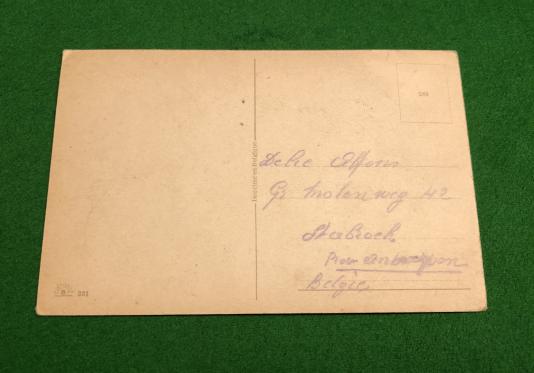 Delie Alfons
Gr molenweg 42
Stabroek
Prov antwerpen
Belgie
281